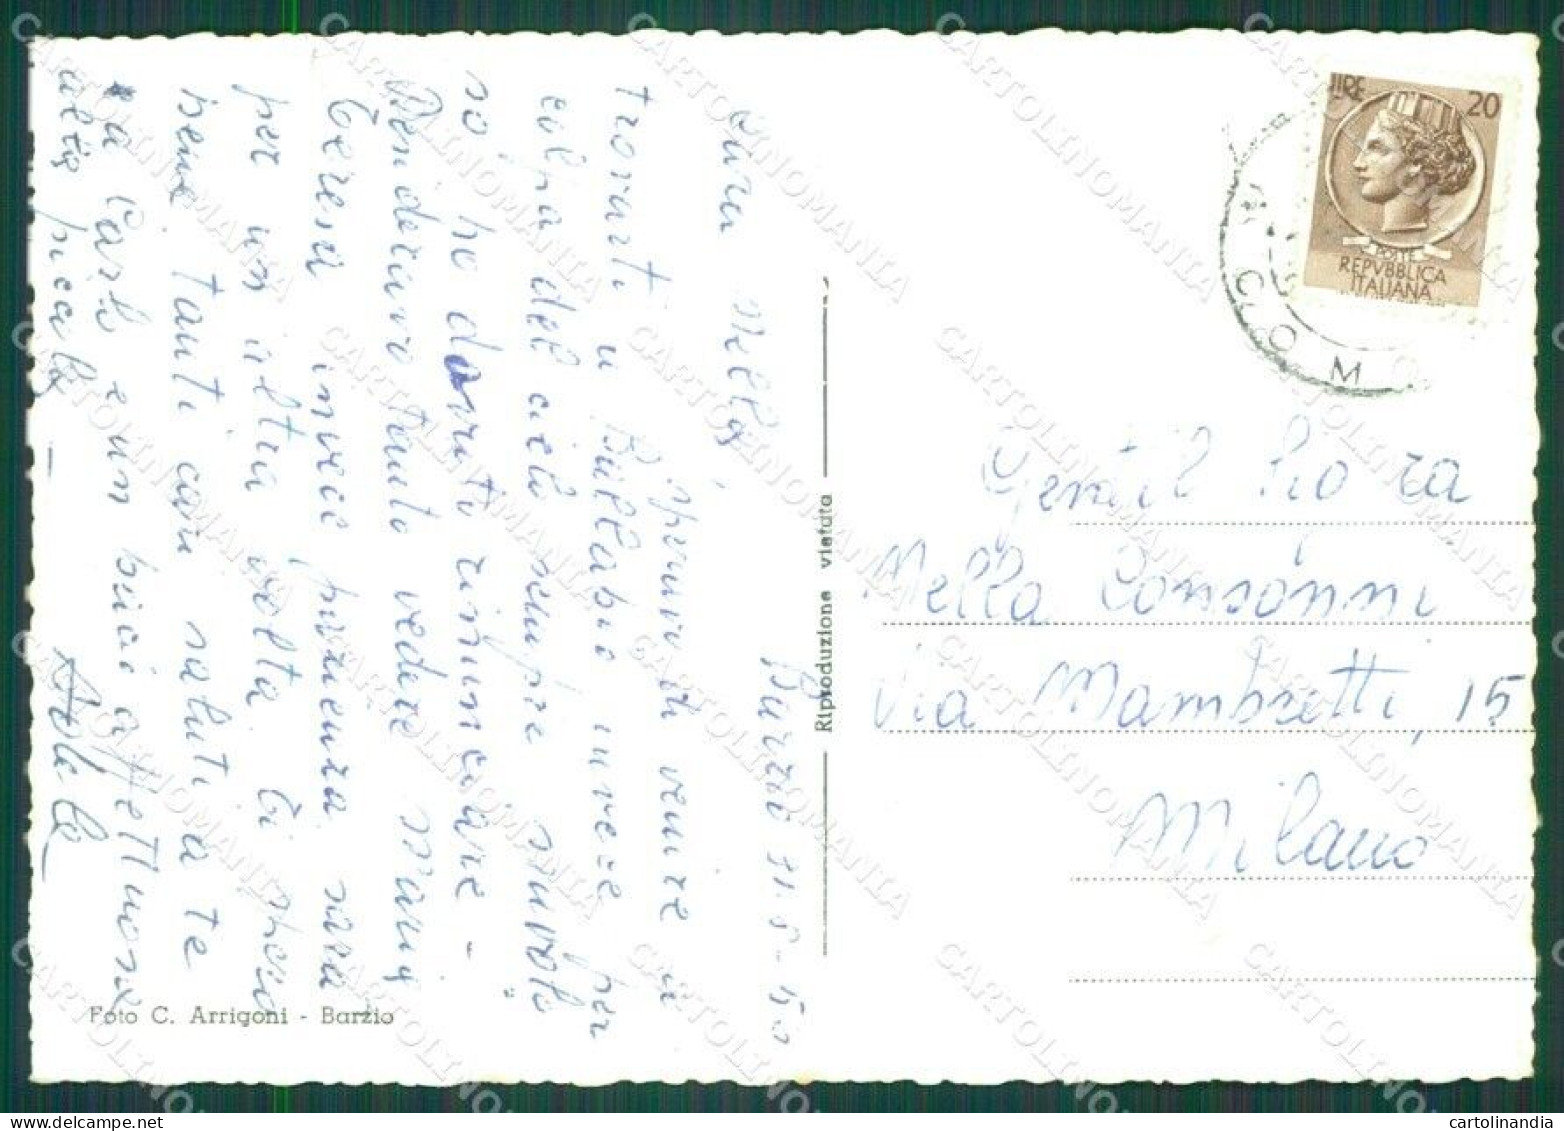 Barzio 31-8-50
Cara Nella,
Speravo di venire a
trovarti a Ballabio invece per
colpa del cielo sempre nuvolo
so ho dovuto rinunciare -
Desideravo tanto vedere
Teresa invece pazienza sarà
per un'altra volta. Ti
bene tanti cari saluti a te
a Carlo e un bacio affettuoso
alla piccola -
Foto C. Arrigoni - Barzio
Riproduzione vietata
LIRE 20
POSTE
REPVBBLICA
ITALIANA
COMO
Gentil Signora
Nella Consonni
Via Mambretti, 15
Milano
CARTOLINOMANIA
cartolinandia